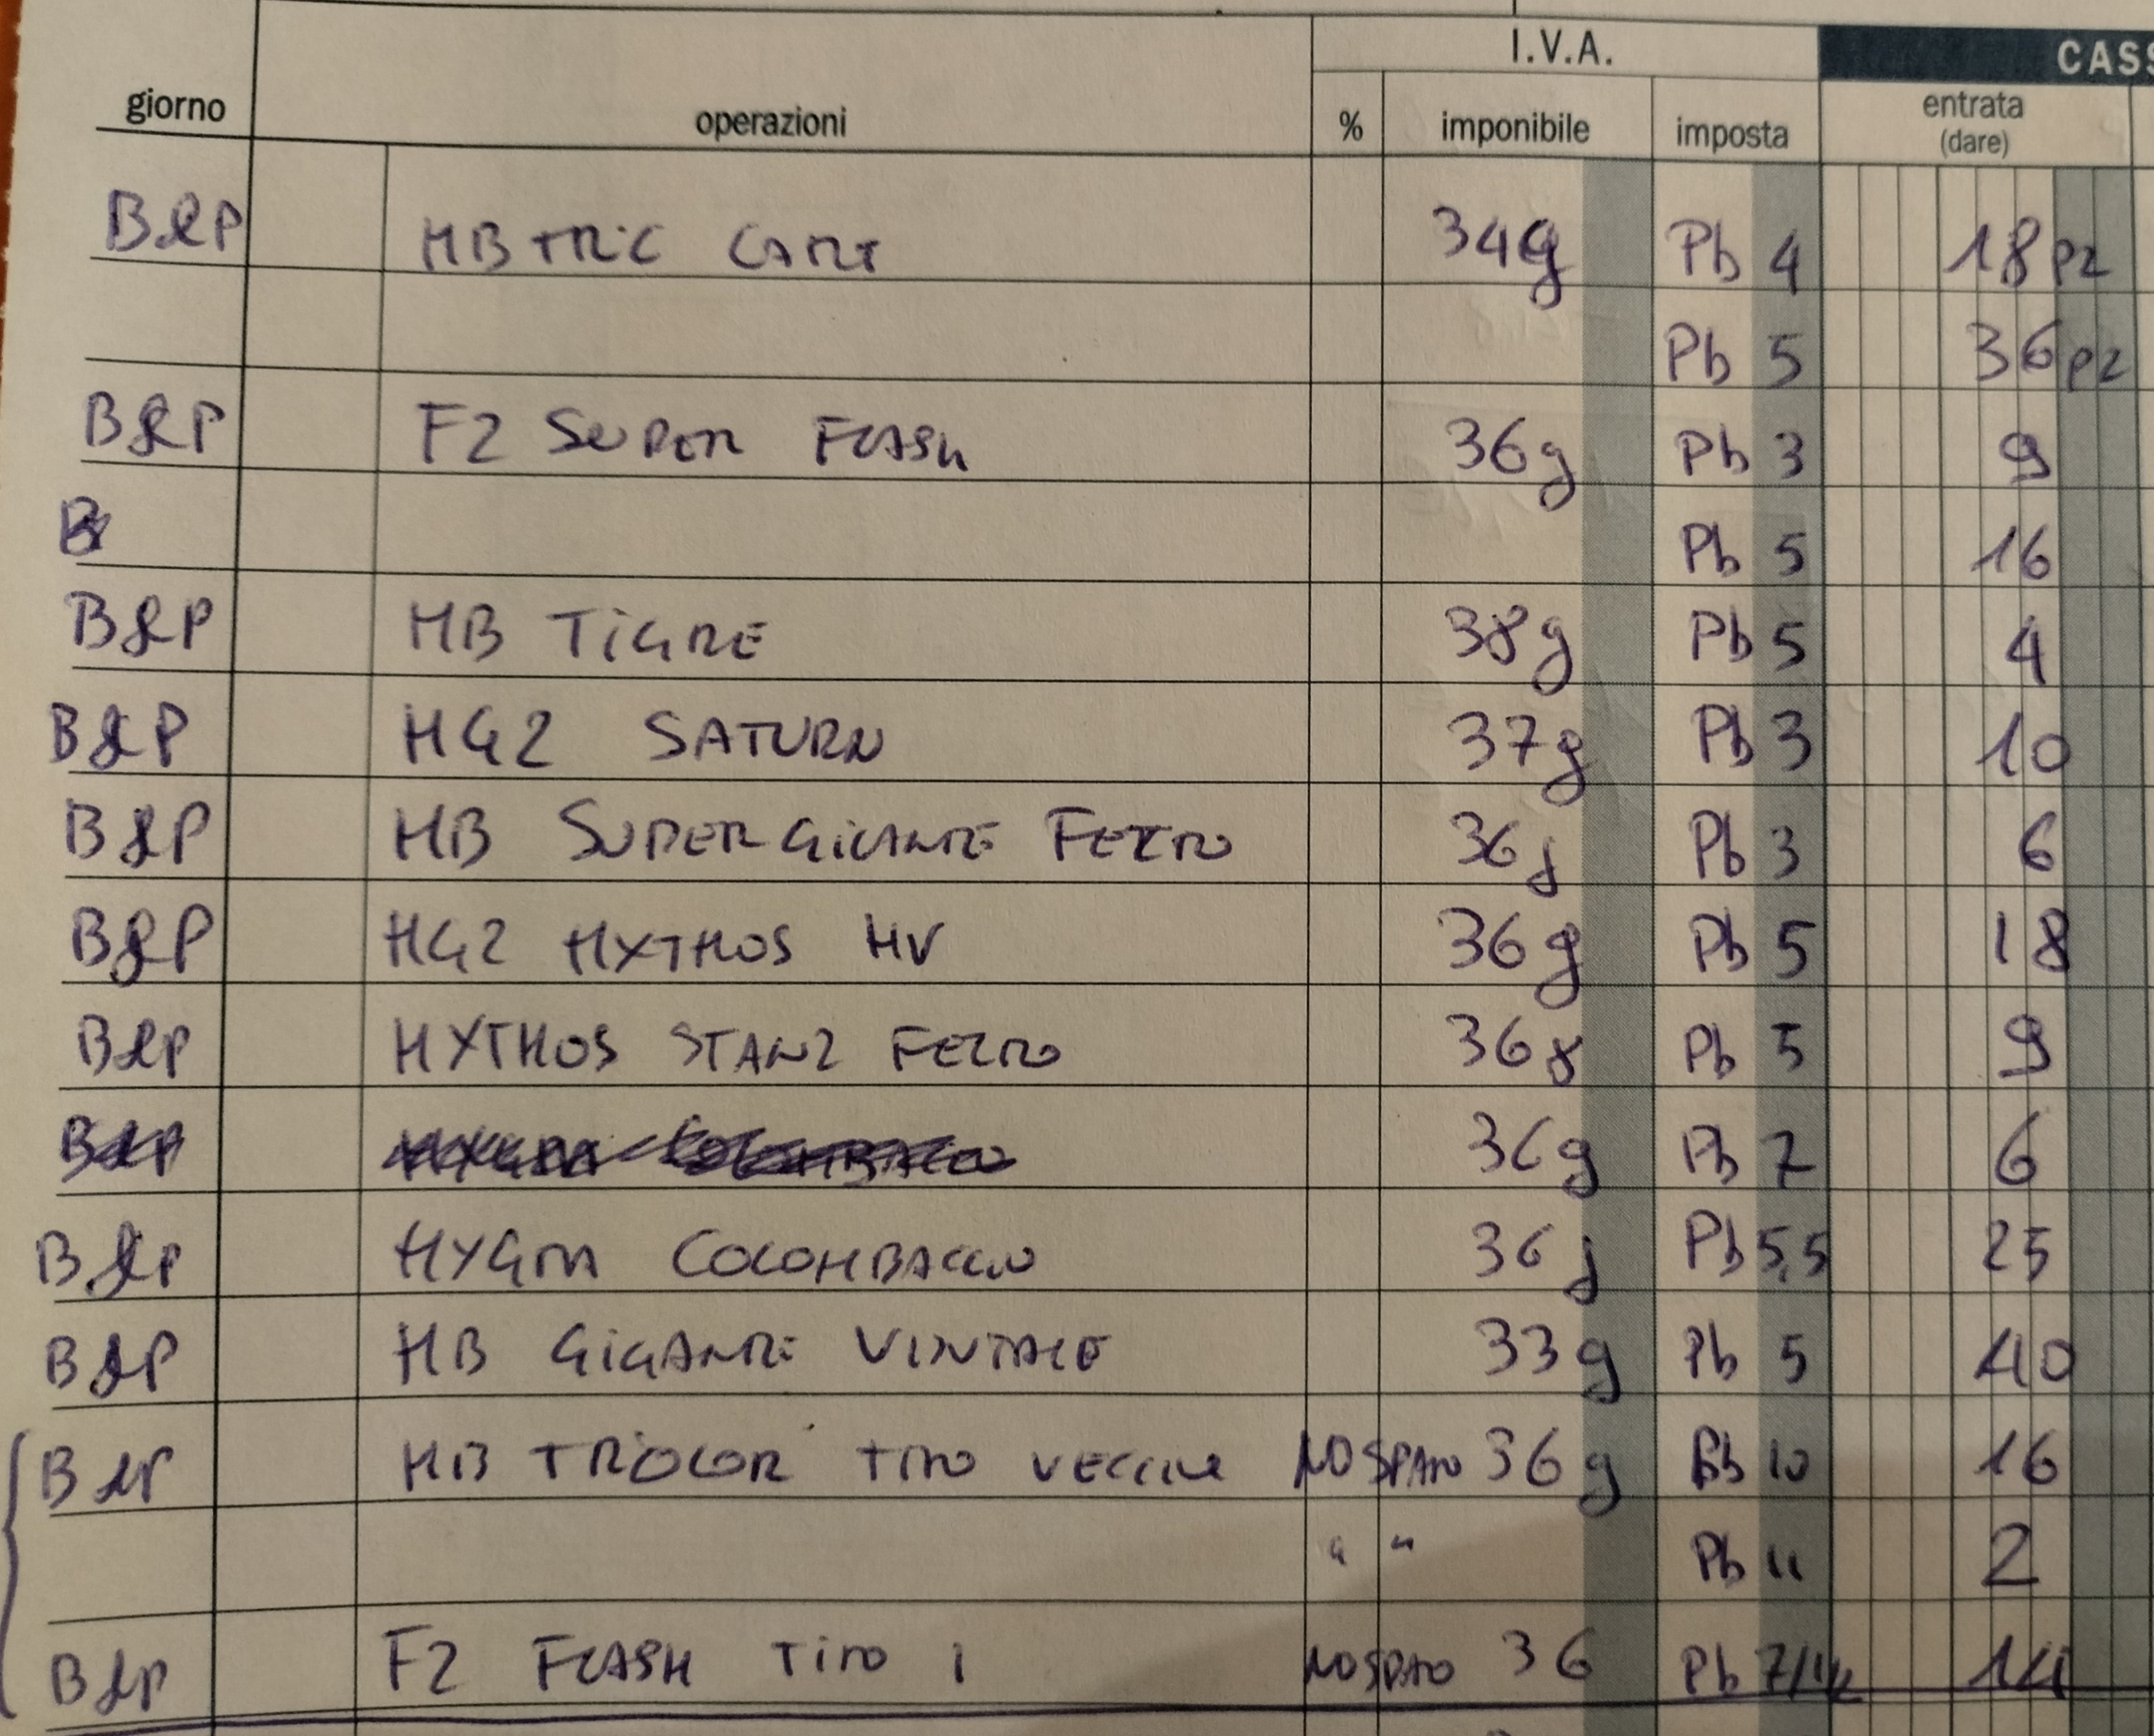 I.V.A. CASS
giorno operazioni % imponibile imposta entrata
(dare)
B&P MB TRIC CART 34g Pb 4 18pz
Pb 5 36pz
B&P F2 SUPER FLASH 36g Pb 3 9
B Pb 5 16
B&P MB TIGRE 38g Pb 5 4
B&P MG2 SATURN 37g Pb 3 10
B&P MB SUPERGIGANTE FELTRO 36g Pb 3 6
B&P MG2 MYTHOS HV 36g Pb 5 18
B&P MYTHOS STAN2 FELTRO 36g Pb 5 9
36g Pb 7 6
B&P MYGRA COLOMBACCIO 36g Pb 5,5 25
B&P MB GIGANTE VINTAGE 33g Pb 5 40
B&P MB TRICOLOR TIPO VECCHIE NO SPARO 36g Pb 10 16
" " Pb 11 2
B&P F2 FLASH TIPO 1 NO SPARO 36 Pb 14